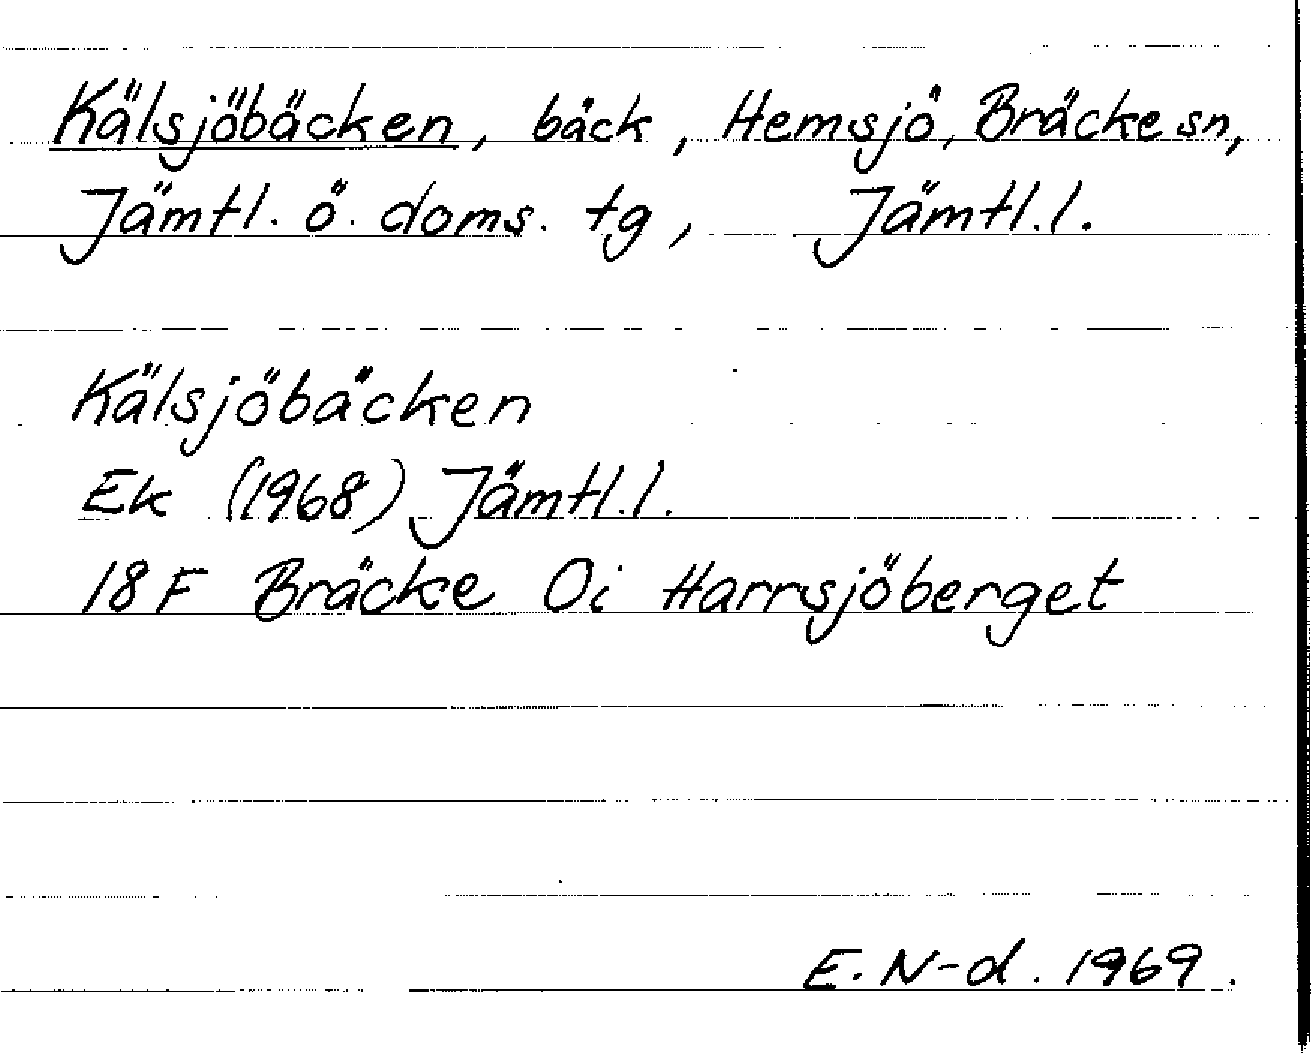 Kälsjöbäcken, bäck, Hemsjö, Bräcke sn,
Jämtl. ö. doms. tg, Jämtl.l.
Kälsjöbäcken
Ek (1968) Jämtl.l.
18F Bräcke 0i Harrsjöberget
E. N-d. 1969.